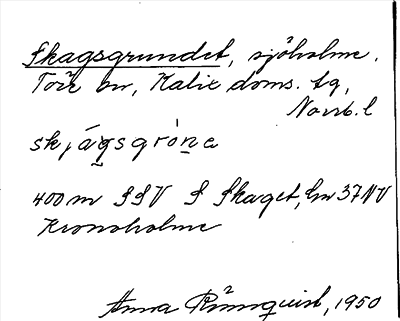 Skagsgrundet, sjöholme.
Töre sn, Kalix doms. tg,
Norrb. l
skjágsgròne
400 m SSV S Skaget, bn 37 NV
Kronoholme
Anna Rönnquist, 1950